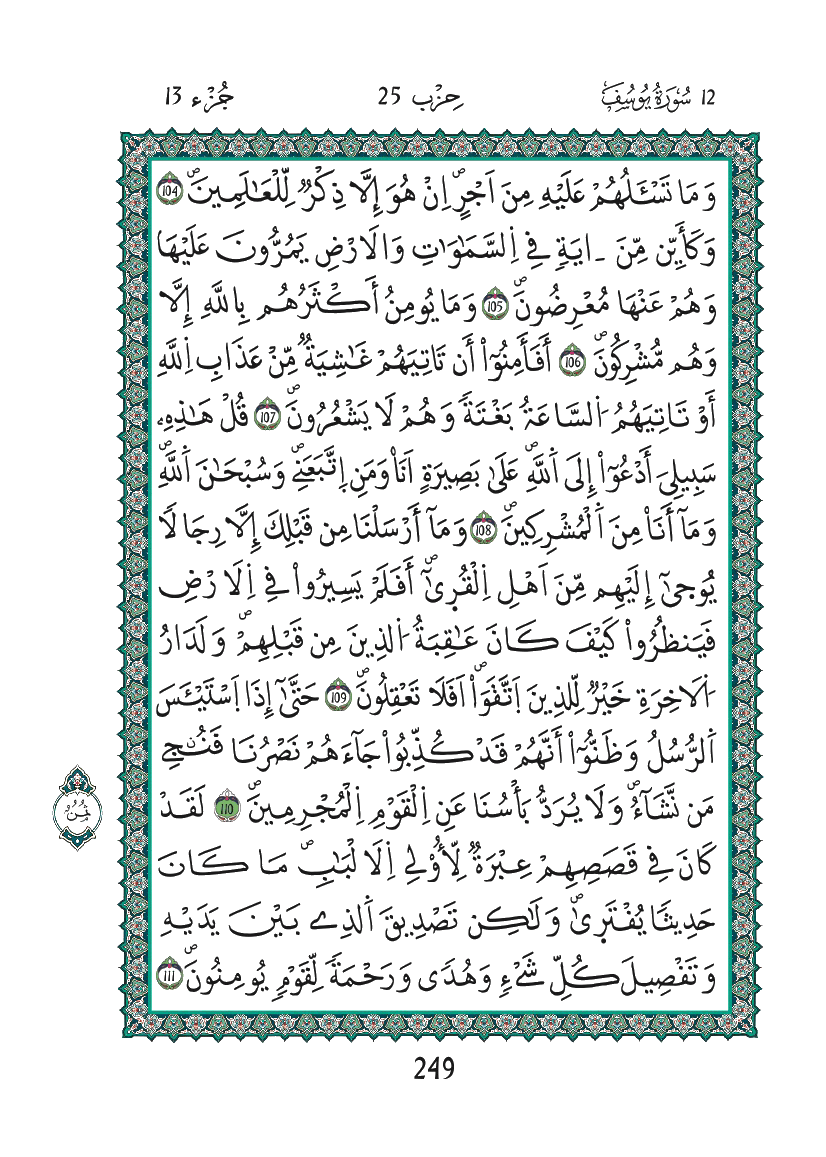 12 سُورَةُ يُوسُفَ
حِزْب 25
جُزْء 13
وَمَا تَسْـَٔلُهُمْ عَلَيْهِ مِنَ اَجْرٍۖ اِنْ هُوَ إِلَّا ذِكْرٞ لِّلْعَٰلَمِينَۖ 104
وَكَأَيِّن مِّنَ ـايَةٖ فِے اِ۬لسَّمَٰوَٰتِ وَالَارْضِ يَمُرُّونَ عَلَيْهَا
وَهُمْ عَنْهَا مُعْرِضُونَۖ 105 وَمَا يُومِنُ أَكْثَرُهُم بِاللَّهِ إِلَّا
وَهُم مُّشْرِكُونَۖ 106 أَفَأَمِنُوٓاْ أَن تَاتِيَهُمْ غَٰشِيَةٞ مِّنْ عَذَابِ اِ۬للَّهِ
أَوْ تَاتِيَهُمُ اُ۬لسَّاعَةُ بَغْتَةٗ وَهُمْ لَا يَشْعُرُونَۖ 107 قُلْ هَٰذِهِۦ
سَبِيلِيَ أَدْعُوٓاْ إِلَى اَ۬للَّهِۖ عَلَىٰ بَصِيرَةٍ اَنَا۠ وَمَنِ اِ۪تَّبَعَنِےۖ وَسُبْحَٰنَ اَ۬للَّهِۖ
وَمَآ أَنَا۠ مِنَ اَ۬لْمُشْرِكِينَۖ 108 وَمَآ أَرْسَلْنَا مِن قَبْلِكَ إِلَّا رِجَالًا
يُوحَىٰٓ إِلَيْهِم مِّنَ اَهْلِ اِ۬لْقُرَىٰٓۖ أَفَلَمْ يَسِيرُواْ فِے اِ۬لَارْضِ
فَيَنظُرُواْ كَيْفَ كَانَ عَٰقِبَةُ اُ۬لذِينَ مِن قَبْلِهِمْۖ وَلَدَارُ
اُ۬لَاخِرَةِ خَيْرٞ لِّلذِينَ اَ۪تَّقَوَاْۖ اَفَلَا تَعْقِلُونَۖ 109 حَتَّىٰٓ إِذَا اَ۪سْتَيْـَٔسَ
اَ۬لرُّسُلُ وَظَنُّوٓاْ أَنَّهُمْ قَدْ كُذِّبُواْ جَآءَهُمْ نَصْرُنَا فَنُـۨجِے
مَن نَّشَآءُۖ وَلَا يُرَدُّ بَأْسُنَا عَنِ اِ۬لْقَوْمِ اِ۬لْمُجْرِمِينَۖ 110 لَقَدْ
كَانَ فِے قَصَصِهِمْ عِبْرَةٞ لِّأُوْلِے اِ۬لَالْبَٰبِۖ مَا كَانَ
حَدِيثاٗ يُفْتَرَىٰۖ وَلَٰكِن تَصْدِيقَ اَ۬لذِے بَيْنَ يَدَيْهِ
وَتَفْصِيلَ كُلِّ شَےْءٖ وَهُدىٗ وَرَحْمَةٗ لِّقَوْمٖ يُومِنُونَۖ 111
ثُمُنٌ
249